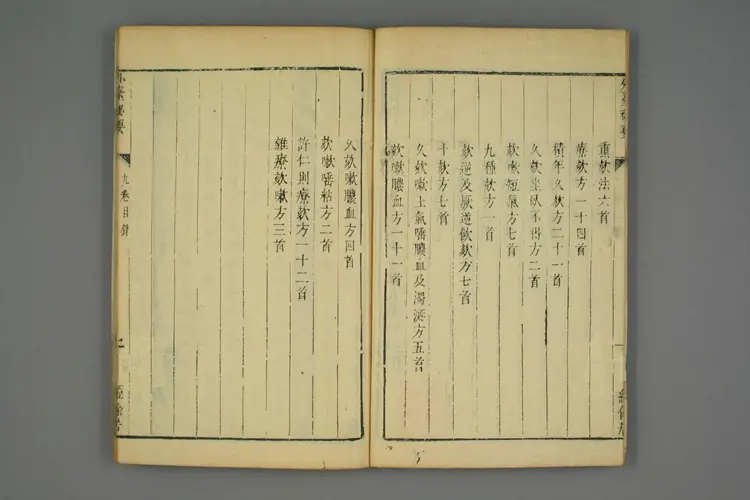 熏欬法六首
療欬方一十四首
積年久欬方二十一首
久欬坐臥不得方二首
欬嗽短氣方七首
九種欬方一首
欬逆及厥逆飲欬方七首
十欬方七首
久欬嗽上氣唾膿血及濁涎方五首
欬嗽膿血方一十一首
久欬嗽膿血方四首
欬嗽唾粘方二首
許仁則療欬方一十二首
雜療欬嗽方三首
外臺秘要
九卷目錄